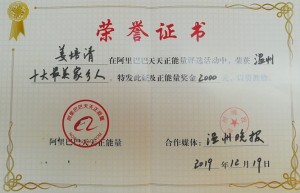 荣誉证书
姜培清
在阿里巴巴天天正能量评选活动中，荣获 温州
十大最美家乡人
，特发此证及正能量奖金2000元，以资鼓励。
阿里巴巴天天正能量
合作媒体：温州晚报
2019年12月19日